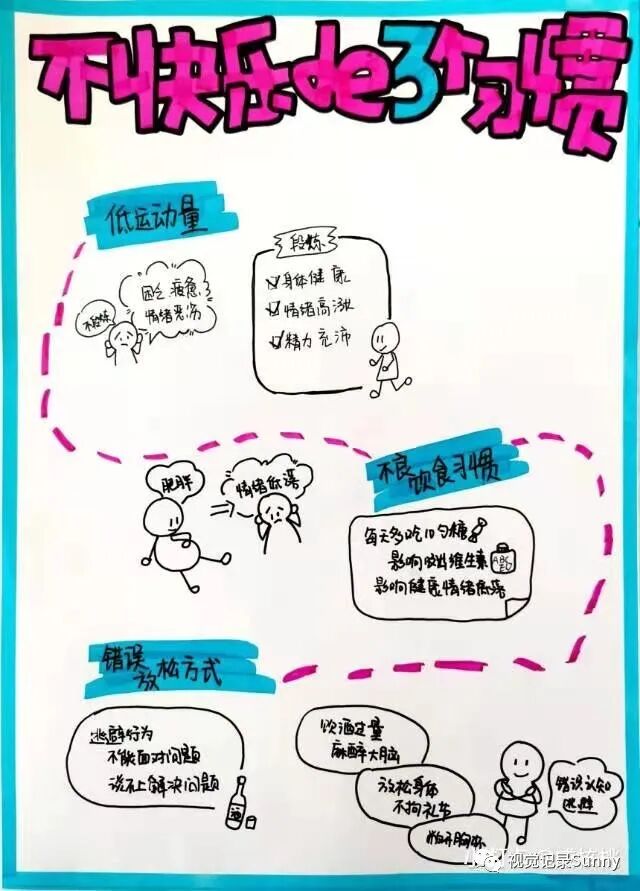 不快乐de3个习惯
低运动量
不锻炼
困乏疲惫
情绪恶劣
段炼
身体健康
情绪高涨
精力充沛
肥胖
情绪低落
不良
饮食习惯
每天多吃10勺糖
影响吸收维生素
ABC
影响健康情绪
错误
放松方式
逃避行为
不能面对问题
说不上解决问题
酒
饮酒过量
麻醉大脑
放松身体
不拘礼节
错误认知
逃避
视觉记录Sunny